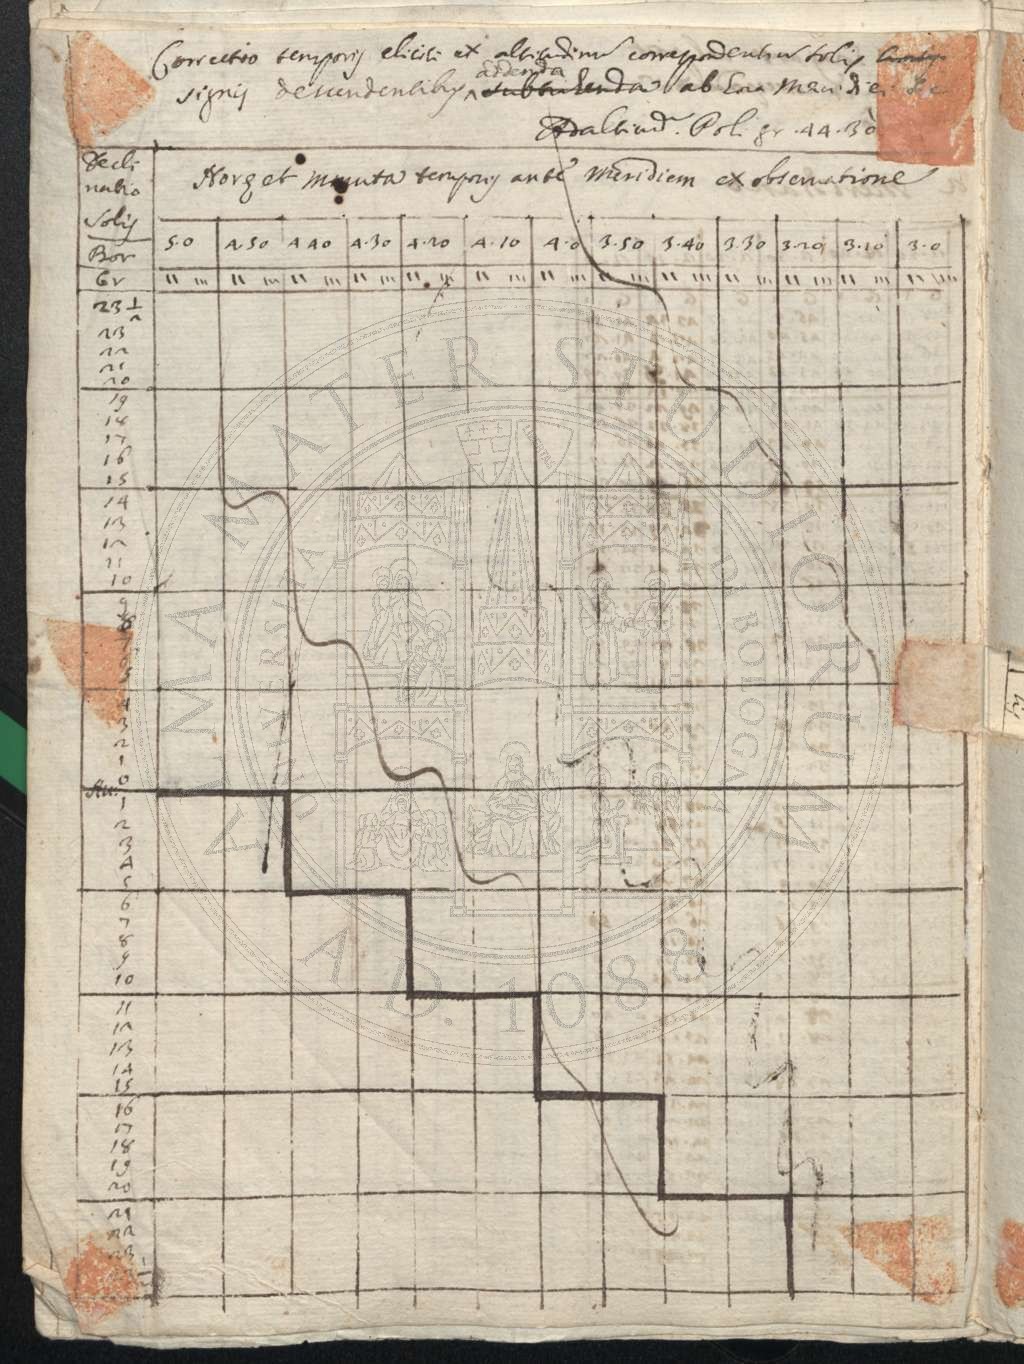 Correctio temporis eliciti ex altitudinu correspondentiu Solis
addenda
signis descendentibus subtrahenda ab hora Meridiei
Ad altitud. Poli gr. 44. 30
Decli
natio
Solis
Bor
Gr
Horæ et Minuta temporis ante Meridiem ex observatione
5.0 4.50 4.40 4.30 4.20 4.10 4.0 3.50 3.40 3.30 3.20 3.10 3.0
" ''' " ''' " ''' " ''' " ''' " ''' " ''' " ''' " ''' " ''' " ''' " ''' " '''
23 1/2
23
22
21
20
19
18
17
16
15
14
13
12
11
10
9
8
4
3
2
1
0
Au. 1
2
3
4
5
6
7
8
9
10
11
12
13
14
15
16
17
18
19
20
21
22
23
ALMA MATER STUDIORUM
UNIVERSITÀ DI BOLOGNA
A.D. 1088